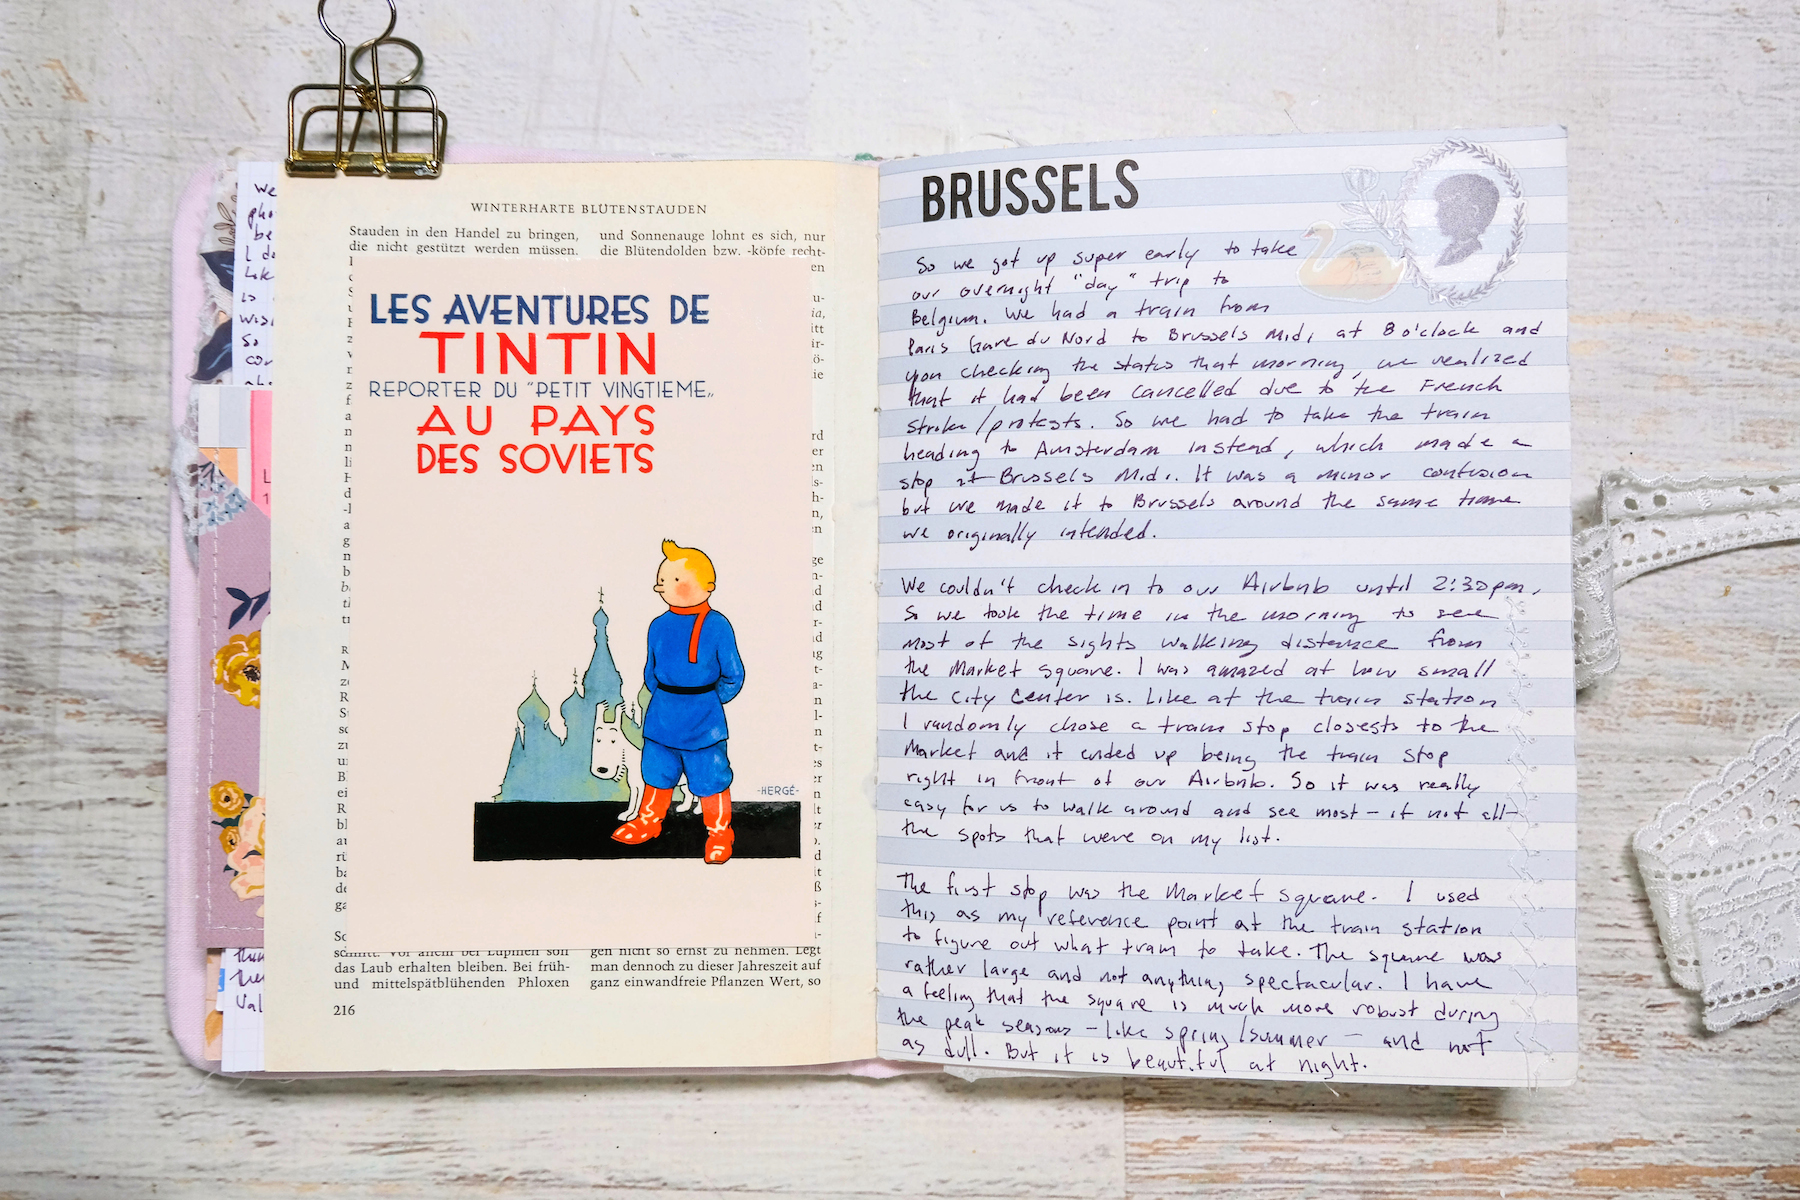 WINTERHARTE BLÜTENSTAUDEN
Stauden in den Handel zu bringen,
die nicht gestützt werden müssen.
und Sonnenauge lohnt es sich, nur
die Blütendolden bzw. -köpfe recht-
LES AVENTURES DE
TINTIN
REPORTER DU "PETIT VINGTIEME"
AU PAYS
DES SOVIETS
-HERGÉ-
schnitt. Vor allem bei Lupinen soll
das Laub erhalten bleiben. Bei früh-
und mittelspätblühenden Phloxen
gen nicht so ernst zu nehmen. Legt
man dennoch zu dieser Jahreszeit auf
ganz einwandfreie Pflanzen Wert, so
216
BRUSSELS
So we got up super early to take
our overnight "day" trip to
Belgium. We had a train from
Paris Gare du Nord to Brussels Midi at 8 o'clock and
upon checking the status that morning, we realized
that it had been cancelled due to the French
strike/protests. So we had to take the train
heading to Amsterdam instead, which made a
stop at Brussels Midi. It was a minor confusion
but we made it to Brussels around the same time
we originally intended.
We couldn't check in to our Airbnb until 2:30pm,
so we took the time in the morning to see
most of the sights walking distance from
the Market square. I was amazed at how small
the city center is. Like at the train station
I randomly chose a tram stop closests to the
Market and it ended up being the tram stop
right in front of our Airbnb. So it was really
easy for us to walk around and see most - if not all -
the spots that were on my list.
The first stop was the Market square. I used
this as my reference point at the train station
to figure out what tram to take. The square was
rather large and not anything spectacular. I have
a feeling that the square is much more robust during
the peak seasons - like spring/summer - and not
as dull. But it is beautiful at night.